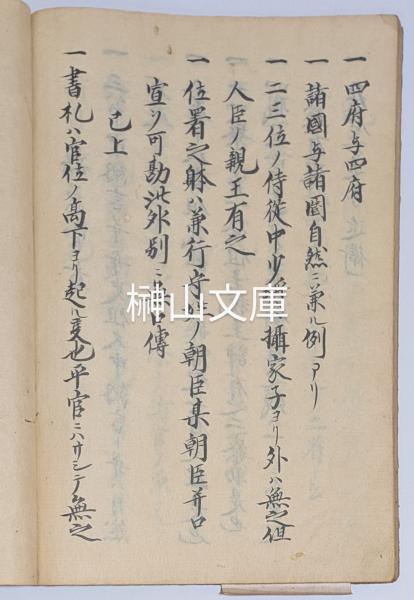 一四府与四府
一諸國与諸國自然ニ兼ル例アリ
一二三位ノ侍従中少将 攝家子ヨリ外ハ無之但
人臣ノ親王有之
一位署之躰ハ兼行守 ノ朝臣某朝臣并口
宣ヲ可勘此外別ニ 口傳
已上
一書札ハ官位ノ高下ヨリ起ル叓也平官ニハサシテ無之
榊山文庫